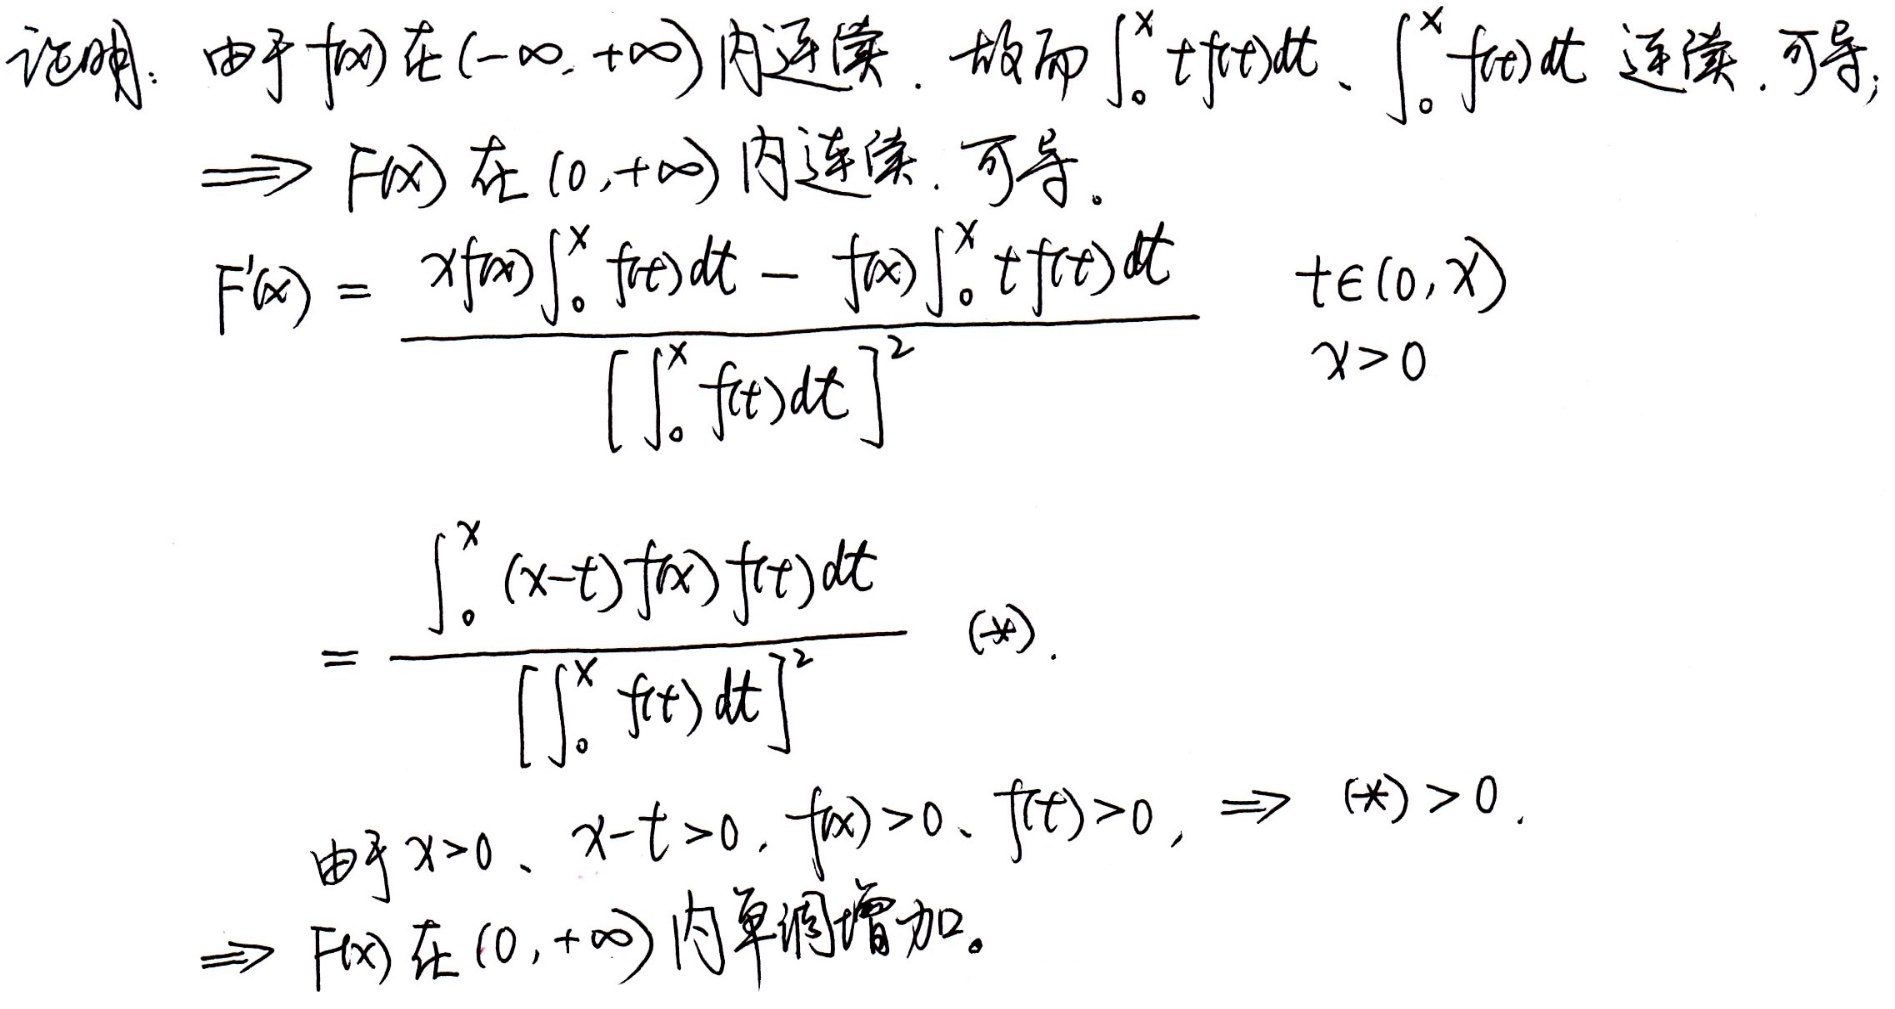 证明: 由于 f(x) 在 (-∞, +∞) 内连续. 故而 ∫₀ˣ t f(t)dt、∫₀ˣ f(t)dt 连续. 可导;
⟹ F(x) 在 (0, +∞) 内连续. 可导。
F'(x) = \frac{x f(x) ∫₀ˣ f(t)dt - f(x) ∫₀ˣ t f(t)dt}{[∫₀ˣ f(t)dt]²} t∈(0, x)
x>0
= \frac{∫₀ˣ (x-t) f(x) f(t)dt}{[∫₀ˣ f(t)dt]²} (*).
由于 x>0、 x-t>0, f(x)>0、 f(t)>0, ⟹ (*)>0.
⟹ F(x) 在 (0, +∞) 内单调增加。